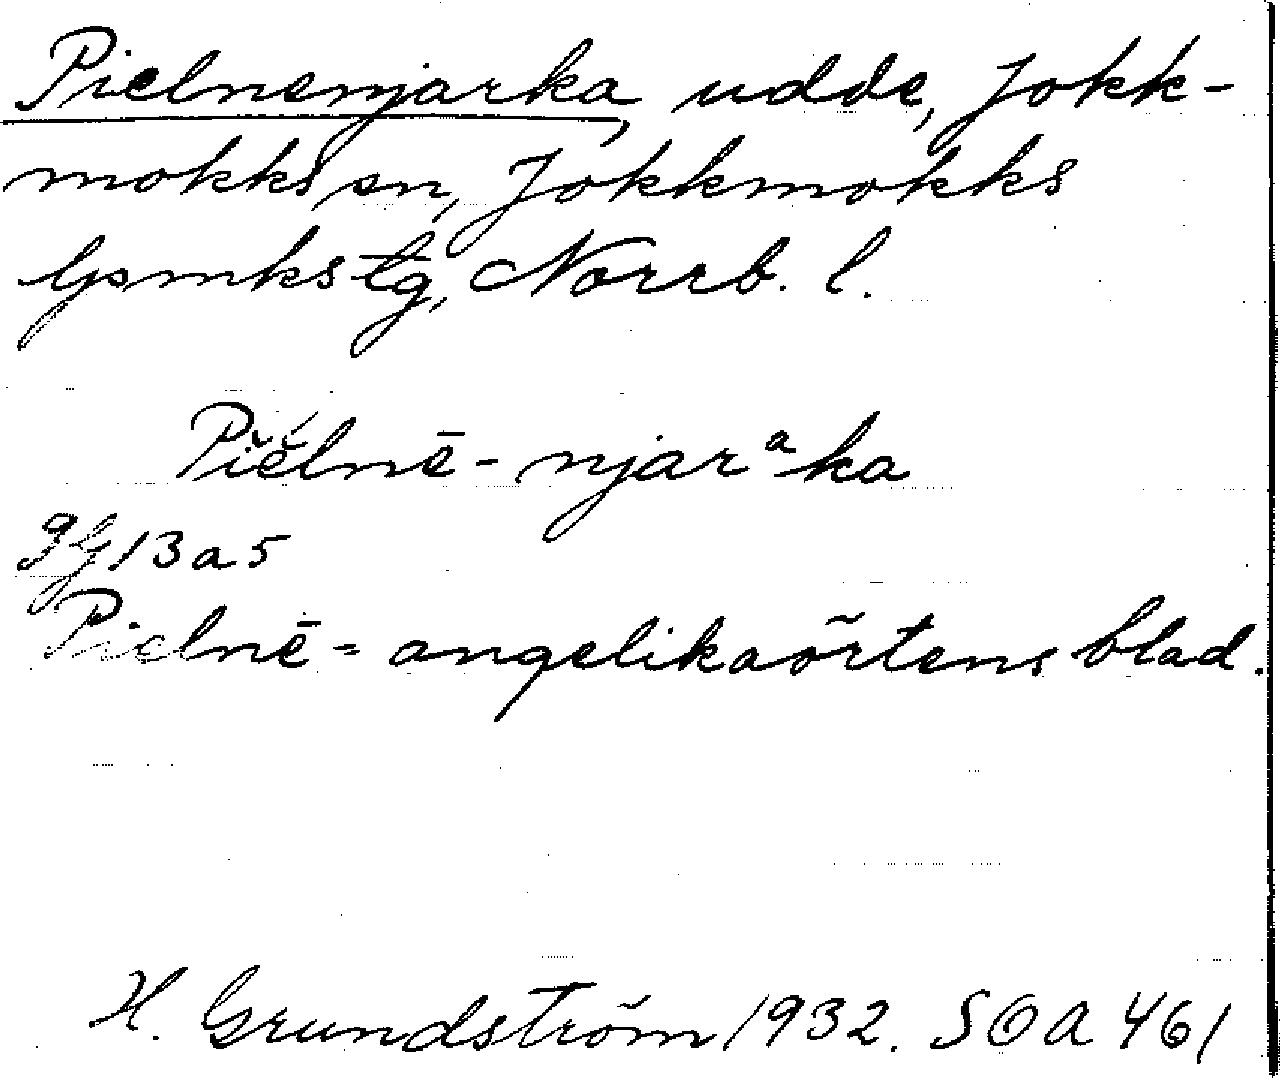 Pielnenjarka, udde, Jokk-
mokks sn, Jokkmokks
lpmks tg, Norrb. l.
Pĭĕ́lnē-njarᵃka
Bl 13 a 5
Pielnē = angelikaörtens blad.
H. Grundström 1932. SOA 461